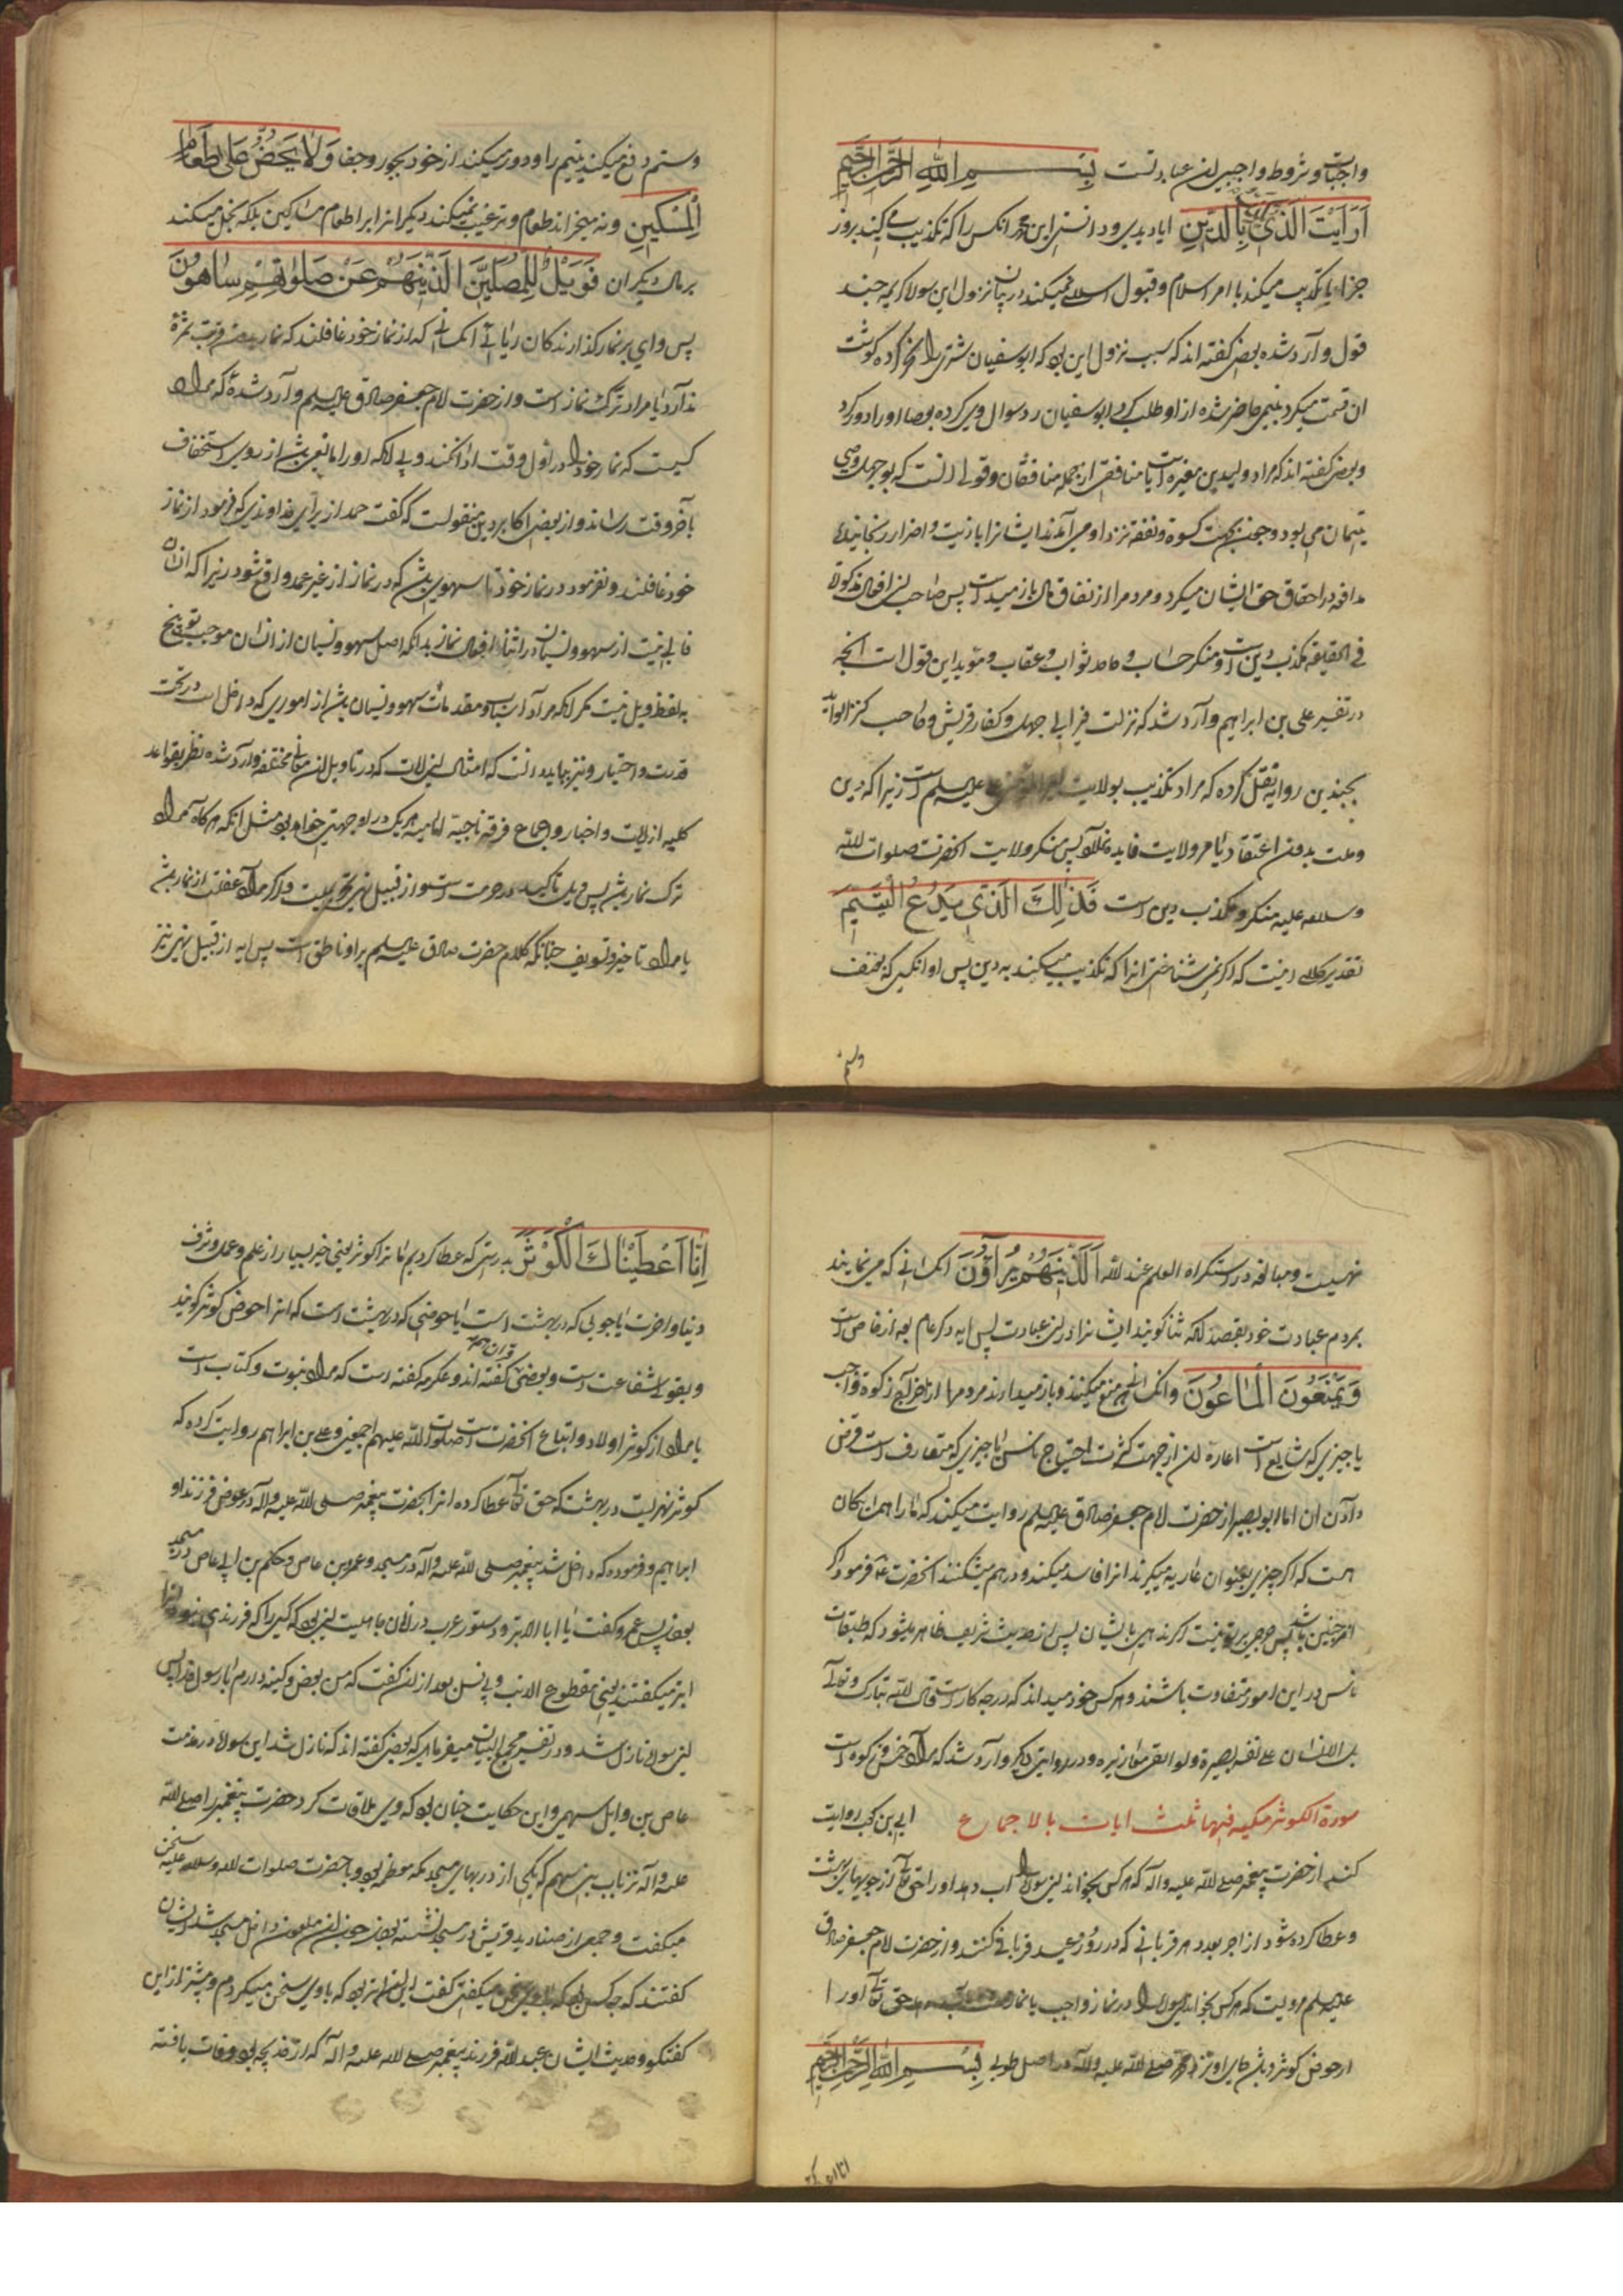 واجبات و شروط واجبی این عبادتست بسم الله الرحمن الرحیم
اَرَاَیْتَ الَّذی یُکَذِّبُ بِالدّینِ ایا دیدی و دانستی این محمد انکس را که تکذیب می کند بروز
جزا یا تکذیب میکند با امر اسلام و قبول اسلام نمیکند در بیان نزول این سوره کریمه چند
قول وارد شده بعضی کفته اند که سبب نزول این بود که ابوسفیان شتری را نحر کرده کوشت
ان قسمت میکرد یتیمی حاضر شده از او طلب کرد ابوسفیان رد سوال وی کرده بعصا او را دور کرد
و بعضی کفته اند که مراد ولید بن مغیره است یا منافقی از جمله منافقان و قولی انست که بوجهل وصی
یتیمان می بود و چون بجهت کسوة و نفقه نزد او می آمدند ایشانرا باذیت و اضرار رنجانیده
مدافعه در احقاق حق ایشان میکرد و مردم را از نفاق مال باز میداشت پس صاحب این افعال مذکوره
فی الحقیقه مکذب دین است و منکر حساب و جاحد ثواب و عقاب و موید این قول است انچه
در تفسیر علی بن ابراهیم وارد شد که نزلت فی ابی جهل و کفار قریش و صاحب کنز الفواید
بچندین روایة نقل کرده که مراد تکذیب بولایت علیه السلم است زیرا که دین
و ملت بدون اعتقاد یا مر ولایت فایده ندارد پس منکر ولایت انحضرت صلوات الله
و سلامه علیه منکر و مکذب دین است فَذٰلِکَ الَّذی یَدُعُّ الْیَتیمَ
تقدیر کلام انست که اکر نمی شناختی انرا که تکذیب میکند به دین پس او انکس که بعنف
و ستم دفع میکند یتیم را و دور میکند از خود بجور و جفا وَلا یَحُضُّ عَلی طَعامِ
الْمِسْکینِ و نه میخراند طعام و ترغیب نمیکند دیکرانرا بر اطعام مساکین بلکه بخل میکند
بر مال دیکران فَوَیْلٌ لِلْمُصَلّینَ الَّذینَ هُمْ عَنْ صَلوٰتِهِمْ ساهُونَ
پس وای بر نماز کذارندکان ریائی انکسانی که از نماز خود غافلند که نماز قربت ثمرة
ندارد یا مراد ترک نماز است و از حضرت امام جعفر صادق علیه السلم وارد شده که مراد
کسیست که نماز خود را در اول وقت ادا نکند و بی انکه او را مانعی باشد از روی استخفاف
باخر وقت رساند و از بعضی اکابر دین منقولست که کفت حمد از برای خداوندی که فرمود از نماز
خود غافلند و نفرمود در نماز خود تا سهوی باشد که در نماز از غیر عمد واقع شود زیرا که انسان
خالی نیست از سهو و نسیان در اثنای افعال نماز بدانکه اصل سهو و نسیان از انسان موجب توبیخ
بلفظ ویل نیست مکر انکه مراد اسباب و مقدمات سهو و نسیان باشد از اموری که داخل است در تحت
قدرت و اختیار و نیز بباید دانست که امثال این ایات که در تاویل ان معانی مختلفه وارد شده نظر بقواعد
کلیه از ایات و اخبار و اجماع فرقه ناجیه امامیه هر یک در او جهتی خواهد بود مثل انکه هر کاه مراد
ترک نماز باشد پس ویل تاکید در حرمت است و از قبیل نهی تحریمیست و اکر مراد غفلت از نماز باشد
یا مراد تاخیر و تسویف چنانکه کلام حضرت صادق علیه السلم بر او ناطق است پس ایه از قبیل نهی تنز
نهیست و مبالغه در استکراه العلم عند الله اَلَّذینَ هُمْ یُراؤُنَ انکسانی که می نمایند
بمردم عبادت خود بقصد انکه ثنا کویند ایشانرا در این عبادت پس ایه ذکر عام بعد از خاص است
وَیَمْنَعُونَ الْماعُونَ و انکسانی که منع میکنند و باز میدارند مردم را از اخراج زکوة واجب
یا چیزی که شایع است اعارة ان از جهت کثرت احتیاج ناس یا چیزی که متعارف است قرض
دادن ان اما ابو بصیر از حضرت امام جعفر صادق علیه السلم روایت میکند که ما را همسایکان
هست که اکر چیزی بعنوان عاریه میکیرند انرا فاسد میکنند و درهم میشکنند انحضرت ع فرمود اکر
امر چنین باشد پس حرجی بر تو نیست اکر ندهی بایشان پس از حدیث شریف ظاهر میشود که طبقات
ناس در این امور متفاوت باشند و هر کس خود میداند که در چه کار است قال الله تبارک و تعالی
بل الانسان علی نفسه بصیرة ولو القی معاذیره و در روایتی دیکر وارد شد که مراد خمس و زکوة است
سورة الکوثر مکیه فیها ثلث ایات بالاجماع ابی بن کعب روایت
کند از حضرت پیغمبر صلی الله علیه واله که هر کس بخواند این سوره را اب دهد او را حق تعالی از جویهای بهشت
و عطا کرده شود از اجر بعدد هر قربانی که در روز عید قربانی کنند و از حضرت امام جعفر صادق
علیه السلم مرویست که هر کس بخواند این سوره را در نماز واجب یا نماز حق تعالی او را
از حوض کوثر و باشد جای او نزد محمد صلی الله علیه واله در اصل طوبی بسم الله الرحمن الرحیم
اِنّا اَعْطَیْناکَ الْکَوْثَرَ بدرستی که عطا کردیم ما ترا کوثر یعنی خیر بسیار از علم و عمل و شرف
دنیا و اخرت یا جوئی که در بهشت است یا حوضی که در بهشت است که انرا حوض کوثر کویند
و بقولی شفاعت است و بعضی قران هم کفته اند و عکرمه کفته است که مراد نبوت و کتاب است
یا مراد از کوثر اولاد و اتباع انحضرت است صلوات الله علیهم اجمعین و علی بن ابراهیم روایت کرده که
کوثر نهریست در بهشت که حق تعالی عطا کرده انرا بحضرت پیغمبر صلی الله علیه واله در عوض فرزند او
ابراهیم و فرموده که داخل شد پیغمبر صلی الله علیه واله در مسجد و عمرو بن عاص و حکم بن ابی عاص در مسجد
بودند پس عمرو کفت یا ابا الابتر و دستور عرب در زمان جاهلیت این بود که کسی را که فرزندی نبود او را
ابتر میکفتند یعنی مقطوع الذنب و بی نسل بعد از ان کفت که من بغض و کینه دارم با رسول خدا پس
این سوره نازل شد و در تفسیر مجمع البیان میفرماید که بعضی کفته اند که نازل شد این سوره در مذمت
عاص بن وائل سهمی و این حکایت چنان بود که وی ملاقات کرد حضرت پیغمبر را صلی الله
علیه واله نزد باب بنی سهم که یکی از دربهای مسجد مکه معظمه بود و با حضرت صلوات الله و سلامه علیه سخن
میکفت و جمعی از صنادید قریش در مسجد نشسته بودند چون این ملعون داخل مسجد شد ایشان
کفتند که چه کس بود که با وی سخن میکفتی کفت این ابتر بود که با وی سخن میکردم و پیشتر از این
کفتکو و حدیث ایشان عبد الله فرزند پیغمبر صلی الله علیه واله که از خدیجه بود وفات یافته